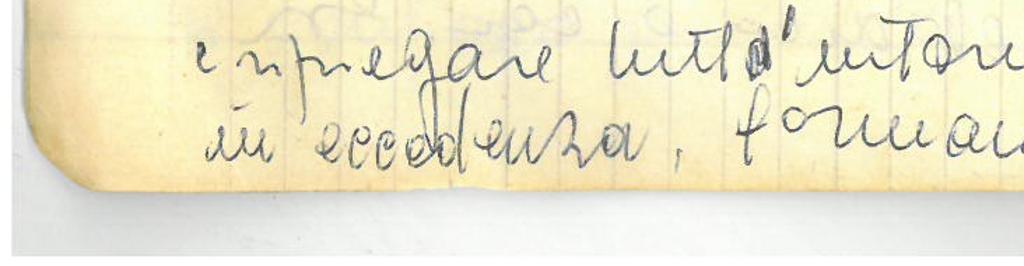 e ripiegare tutt'intorn
in eccedenza, forman